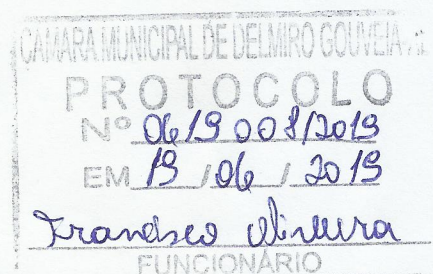 CÂMARA MUNICIPAL DE DELMIRO GOUVEIA
PROTOCOLO
Nº 0619 008/2019
EM 19 / 06 / 2019
Francisco Oliveira
FUNCIONÁRIO